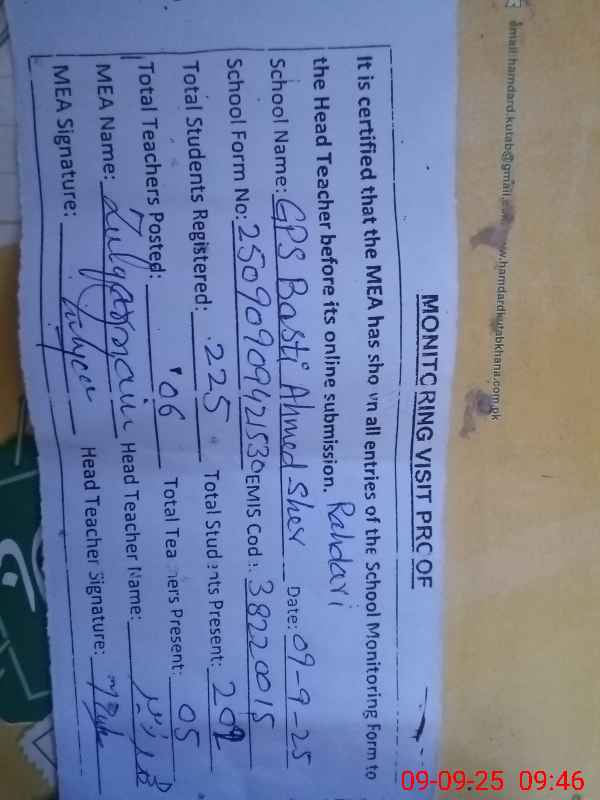 email:hamdard.kutab@gmail.com www.hamdardkutabkhana.com.pk
MONITORING VISIT PROOF
It is certified that the MEA has shown all entries of the School Monitoring Form to
the Head Teacher before its online submission.
Rahdari
School Name: GPS Basti Ahmed Sher Date: 09-9-25
School Form No: 25090909421530 EMIS Code: 38220015
Total Students Registered: 225 Total Students Present: 202
Total Teachers Posted: 06 Total Teachers Present: 05
MEA Name: Zulqarnain Head Teacher Name:
MEA Signature: Head Teacher Signature:
09-09-25 09:46